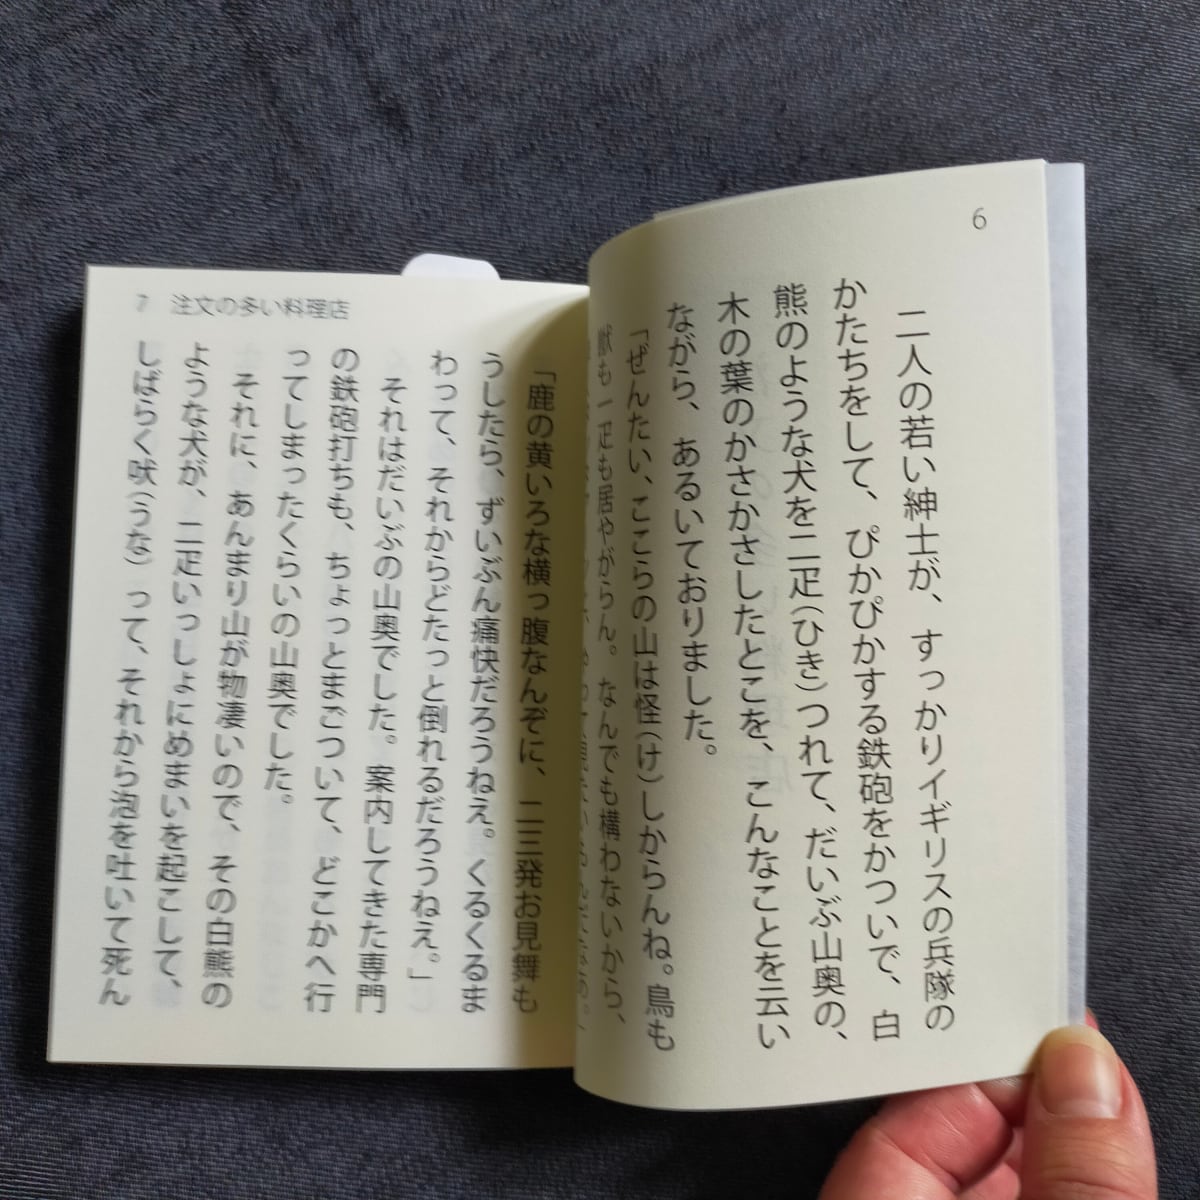 6
二人の若い紳士が、すっかりイギリスの兵隊の
かたちをして、ぴかぴかする鉄砲をかついで、白
熊のような犬を二疋(ひき)つれて、だいぶ山奥の、
木の葉のかさかさしたとこを、こんなことを云い
ながら、あるいておりました。
「ぜんたい、ここらの山は怪(け)しからんね。鳥も
獣も一疋も居やがらん。なんでも構わないから、
7 注文の多い料理店
「鹿の黄いろな横っ腹なんぞに、二三発お見舞も
うしたら、ずいぶん痛快だろうねえ。くるくるま
わって、それからどたっと倒れるだろうねえ。」
それはだいぶの山奥でした。案内してきた専門
の鉄砲打ちも、ちょっとまごついて、どこかへ行
ってしまったくらいの山奥でした。
それに、あんまり山が物凄いので、その白熊の
ような犬が、二疋いっしょにめまいを起こして、
しばらく吠(うな)って、それから泡を吐いて死ん